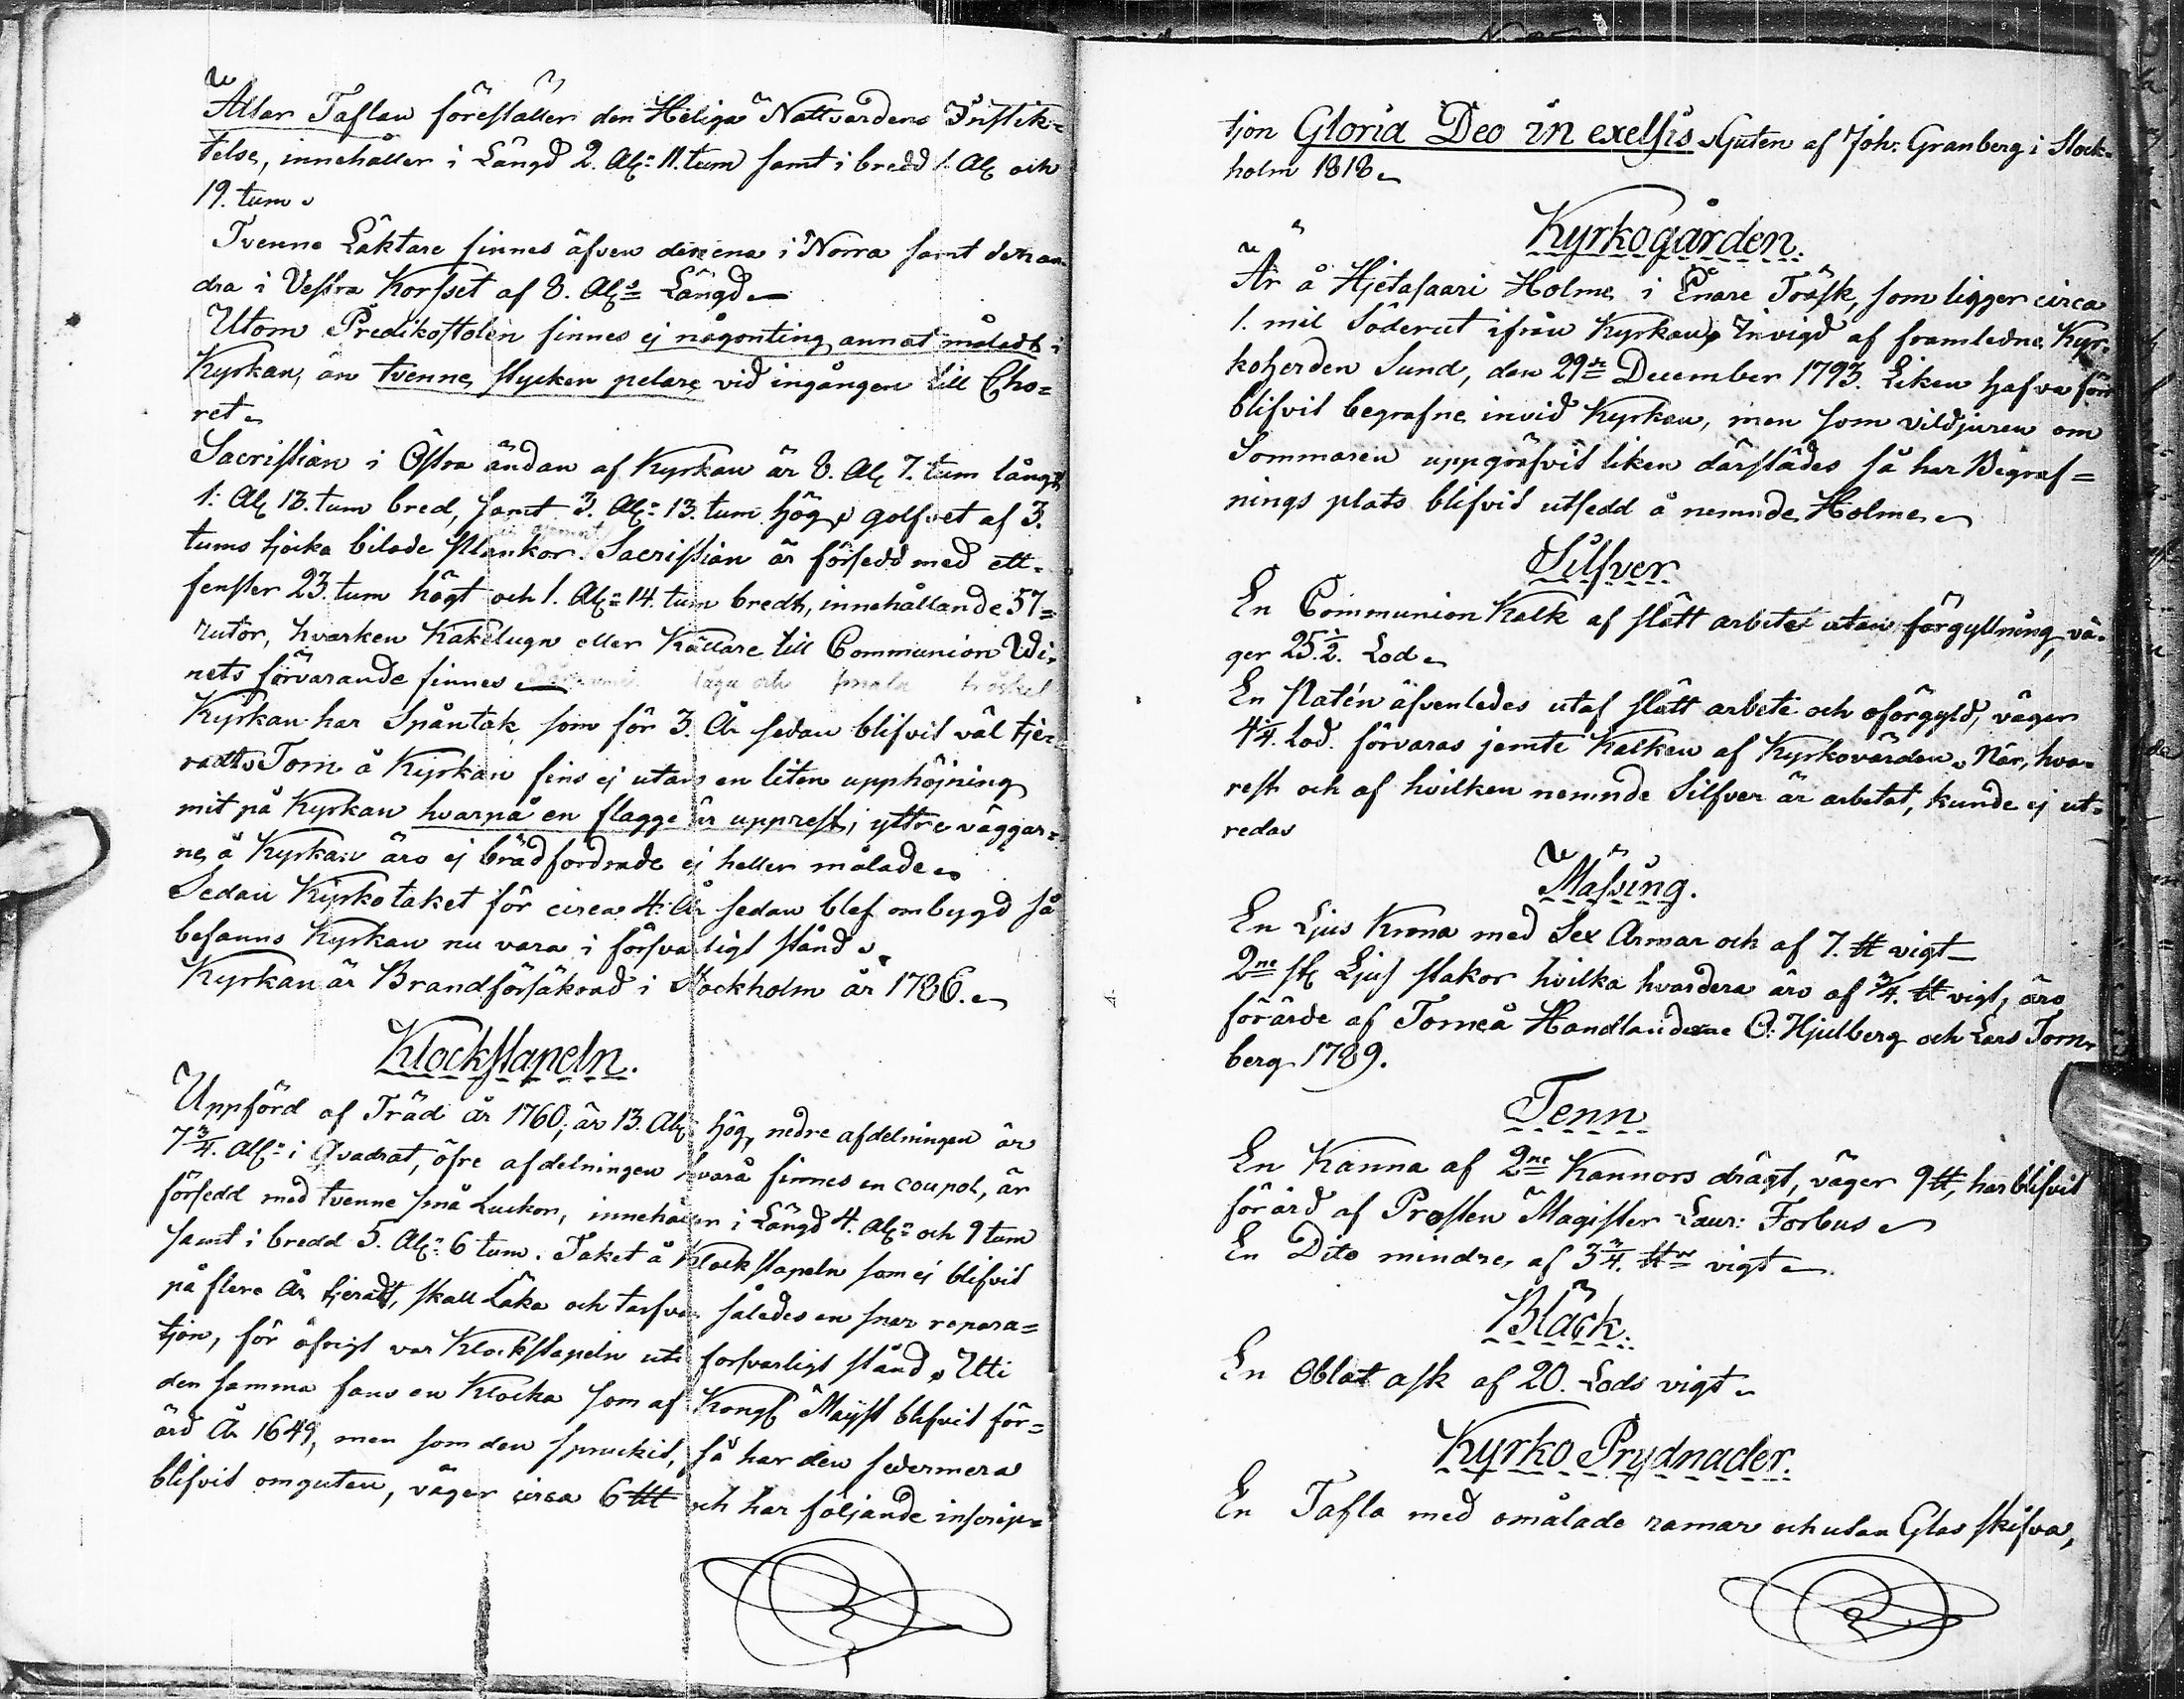 Altar Taflan föreställer den Heliga Nattvardens Instik=
telse, innehåller i Längd 2. Alr: 11. tum samt i bredd 1. Aln och
19. tum.
Tvenne Läktare finnes äfven den ena i Norra samt den an=
dra i Vestra Korsset af 8. Alrs Längd
Utom Predikostolen finnes ej någonting annat måladt i
Kyrkan, än tvenne stycken pelare vid ingången till Cho=
ret
Sacristian i Östra ändan af Kyrkan är 8. Aln 7. tum lång,
1: Aln 13. tum bred, samt 3. Alr: 13. tum hög, golfvet af 3.
tums tjocka bilade Plankor. Sacristian är försedd med ett
fenster 23. tum högt och 1. Aln 14. tum bredt, innehållande 57=
rutor, hvarken Kakelugn eller Källare till Communion Wi=
nets förvarande finnes
Kyrkan har Spåntak, som för 3. År sedan blifvit väl tje=
radt. Torn å Kyrkan fins ej utan en liten upphöjning
mit på Kyrkan hvarpå en flagge är upprest; yttre väggar=
ne å Kyrkan äro ej brädfordrade ej heller målade
Sedan Kyrkotaket för circa 4: År sedan blef ombygd så
befanns Kyrkan nu vara i försvarligt stånd.
Kyrkan är Brandförsäkrad i Stockholm år 1786.
Klockstapeln.
Uppförd af Träd år 1760; är 13. Aln hög, nedre afdelningen är
7 3/4. Alr: i Qvadrat, öfre afdelningen hvarå finnes en coupol, är
försedd med tvenne små Luckor, innehåller i Längd 4. Alr: och 9 tum
samt i bredd 5. Alr: 6 tum. Taket å Klockstapeln som ej blifvit
på flere År tjeradt, skall Läka och tarfvar således en snar repara=
tjon, för öfrigt var Klockstapeln uti forsvarligt stånd. Uti
den samma fans en Klocka som af Kongl Majst blifvit för=
ärd År 1649, men som den spruckit, så har den sedermera
blifvit omguten, väger circa 6 ℔ och har följande inscrip=
tjon Gloria Deo in exelsis. Guten af Joh: Granberg i Stock=
holm 1818
Kyrkogården.
Är å Hjetasaari Holme i Enare Träsk, som ligger circa
1. mil Söderut ifrån Kyrkan, Invigd af framledne Kyr=
koherden Sund, den 29de December 1793. Liken hafva förr
blifvit begrafne invid Kyrkan, men som vildjuren om
Sommaren uppgräfvit liken därstädes så har Begraf=
nings plats blifvit utsedd å nemnde Holme
Silfver
En Communion Kalk af slätt arbete utan förgyllning, vä=
ger 25 1/2. Lod
En Patén äfvenledes utaf slätt arbete och oförgyld, väger
4 1/4. Lod. förvaras jemte Kalken af Kyrkovärden. När, hva=
rest och af hvilken nemnde Silfver är arbetat, kunde ej ut=
redas
Mässing.
En Ljus Krona med Sex Armar och af 7. ℔ vigt
2ne st Ljus stakor hvilka hvardera äro af 3/4. ℔ vigt, äro
förärde af Torneå Handlanderne O: Hjulberg och Lars Torn=
berg 1789.
Tenn
En Kanna af 2ne Kannors drägt, väger 9 ℔, har blifvit
förärd af Prosten Magister Laur: Forbus
En Dito mindre, af 3 3/4. ℔r vigt
Bläck.
En Oblat ask af 20. Lods vigt
Kyrko Prydnader.
En Tafla med omålade ramar och utan Glas skifva,